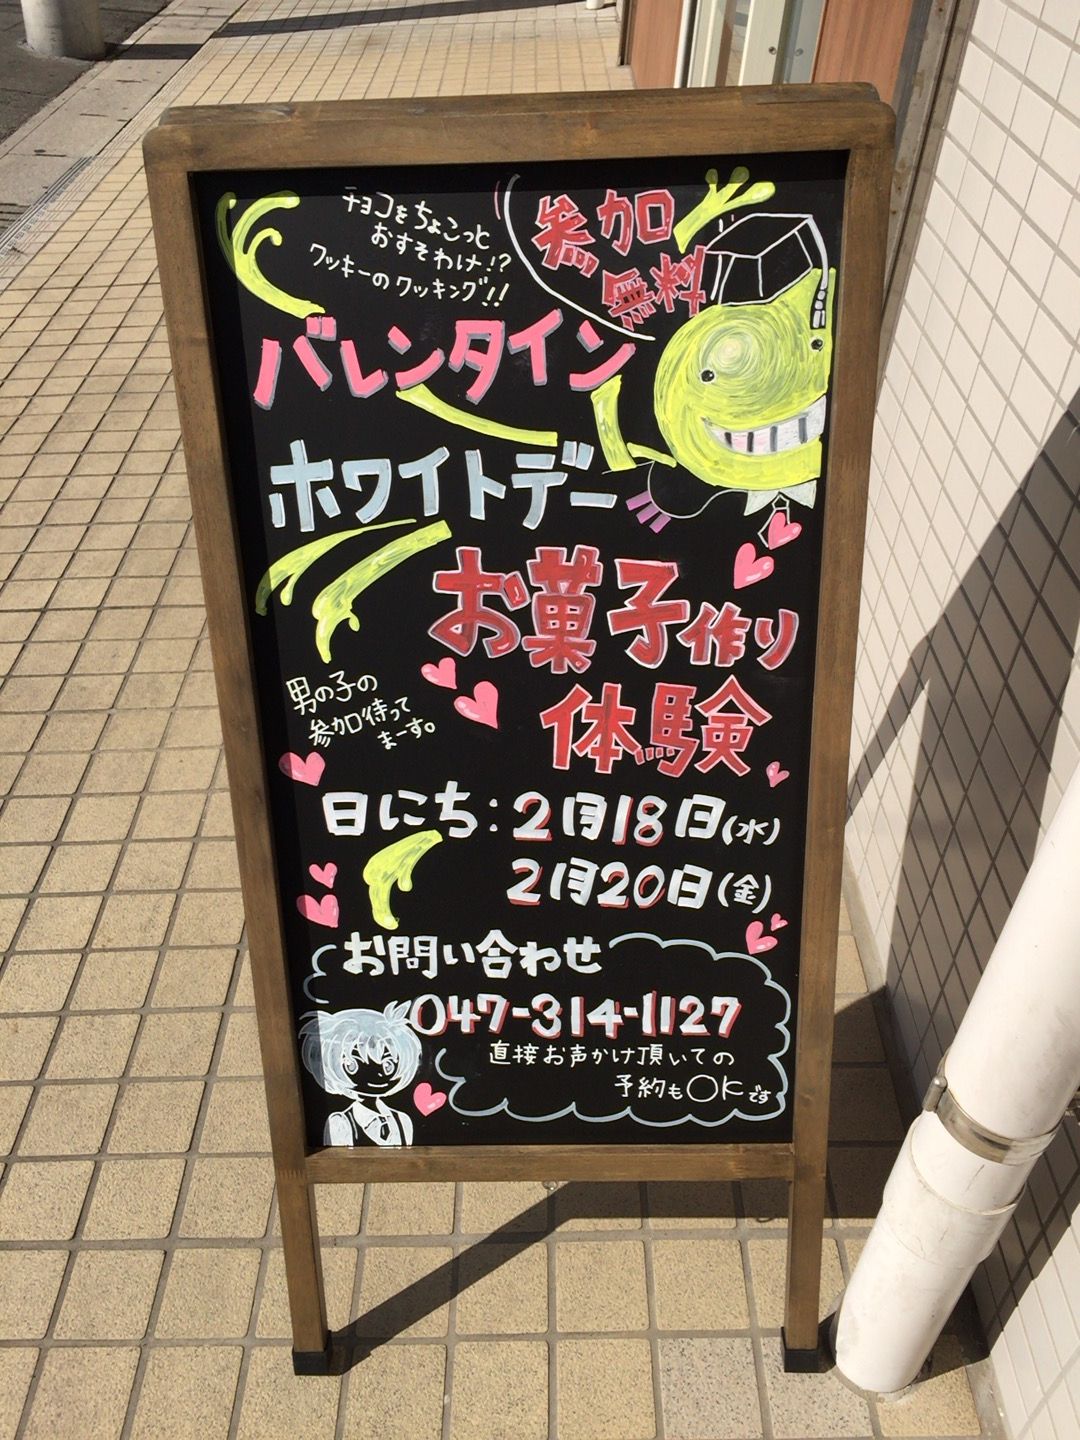 チョコをちょこっと
おすそわけ!?
クッキーのクッキング!!
参加
無料
バレンタイン
ホワイトデー
お菓子作り
体験
男の子の
参加待って
まーす。
日にち:2月18日(水)
2月20日(金)
お問い合わせ
047-314-1127
直接お声かけ頂いての
予約もOKです